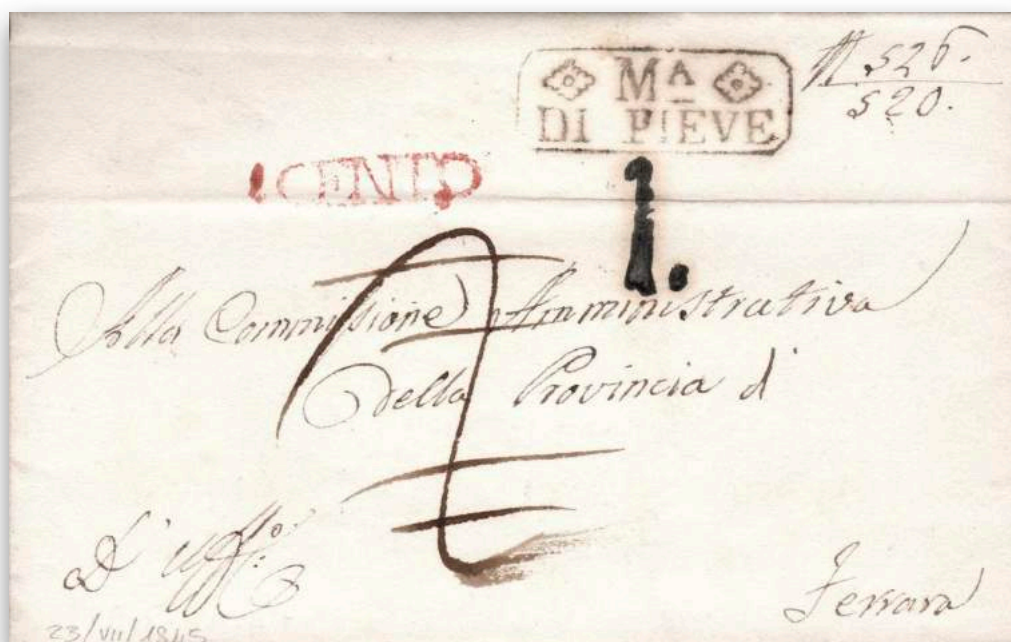 MA
DI PIEVE
526.
520.
CENTO
1.
Alla Commissione Amministrativa
della Provincia di
D' uff.o
Ferrara
23/VII/1845